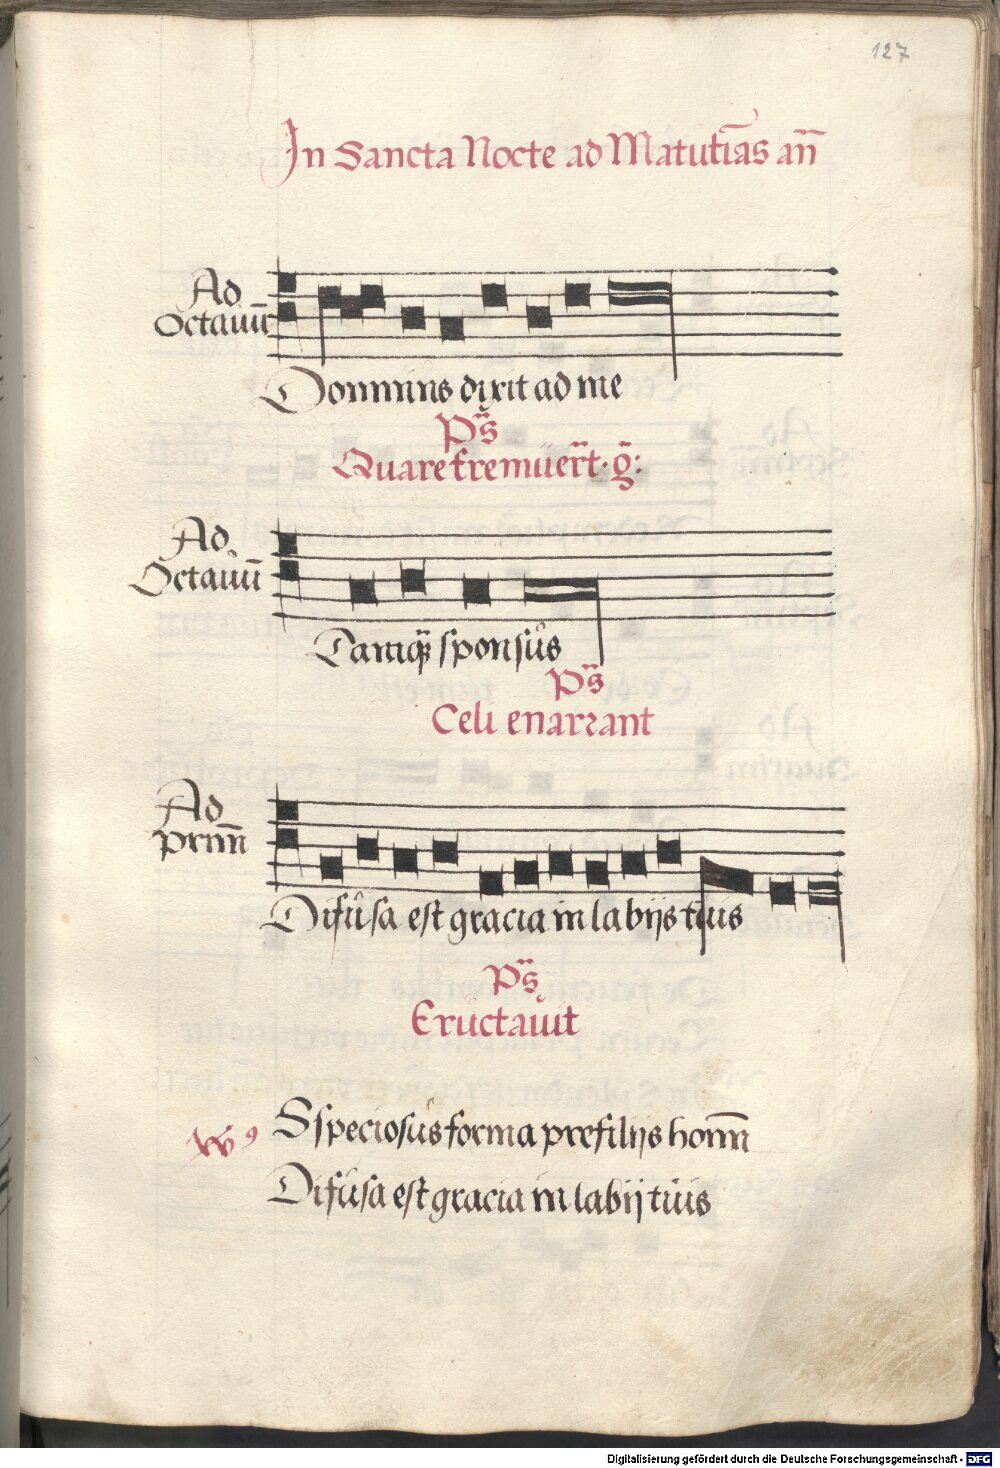 127
In Sancta Nocte ad Matuti̅as an̅
Ad
Octauu̅
Dominus dixit ad me
Ps
Quare fremuer̅t. g̅:
Ad
Octauu̅
Tamq̅ sponsus
Ps
Celi enarrant
Ad
prim̅
Difusa est gracia in labijs tuis
Ps
Eructauit
Sspeciosus forma prefilijs homi̅
Difusa est gracia in labij tuis
Digitalisierung gefördert durch die Deutsche Forschungsgemeinschaft - DFG